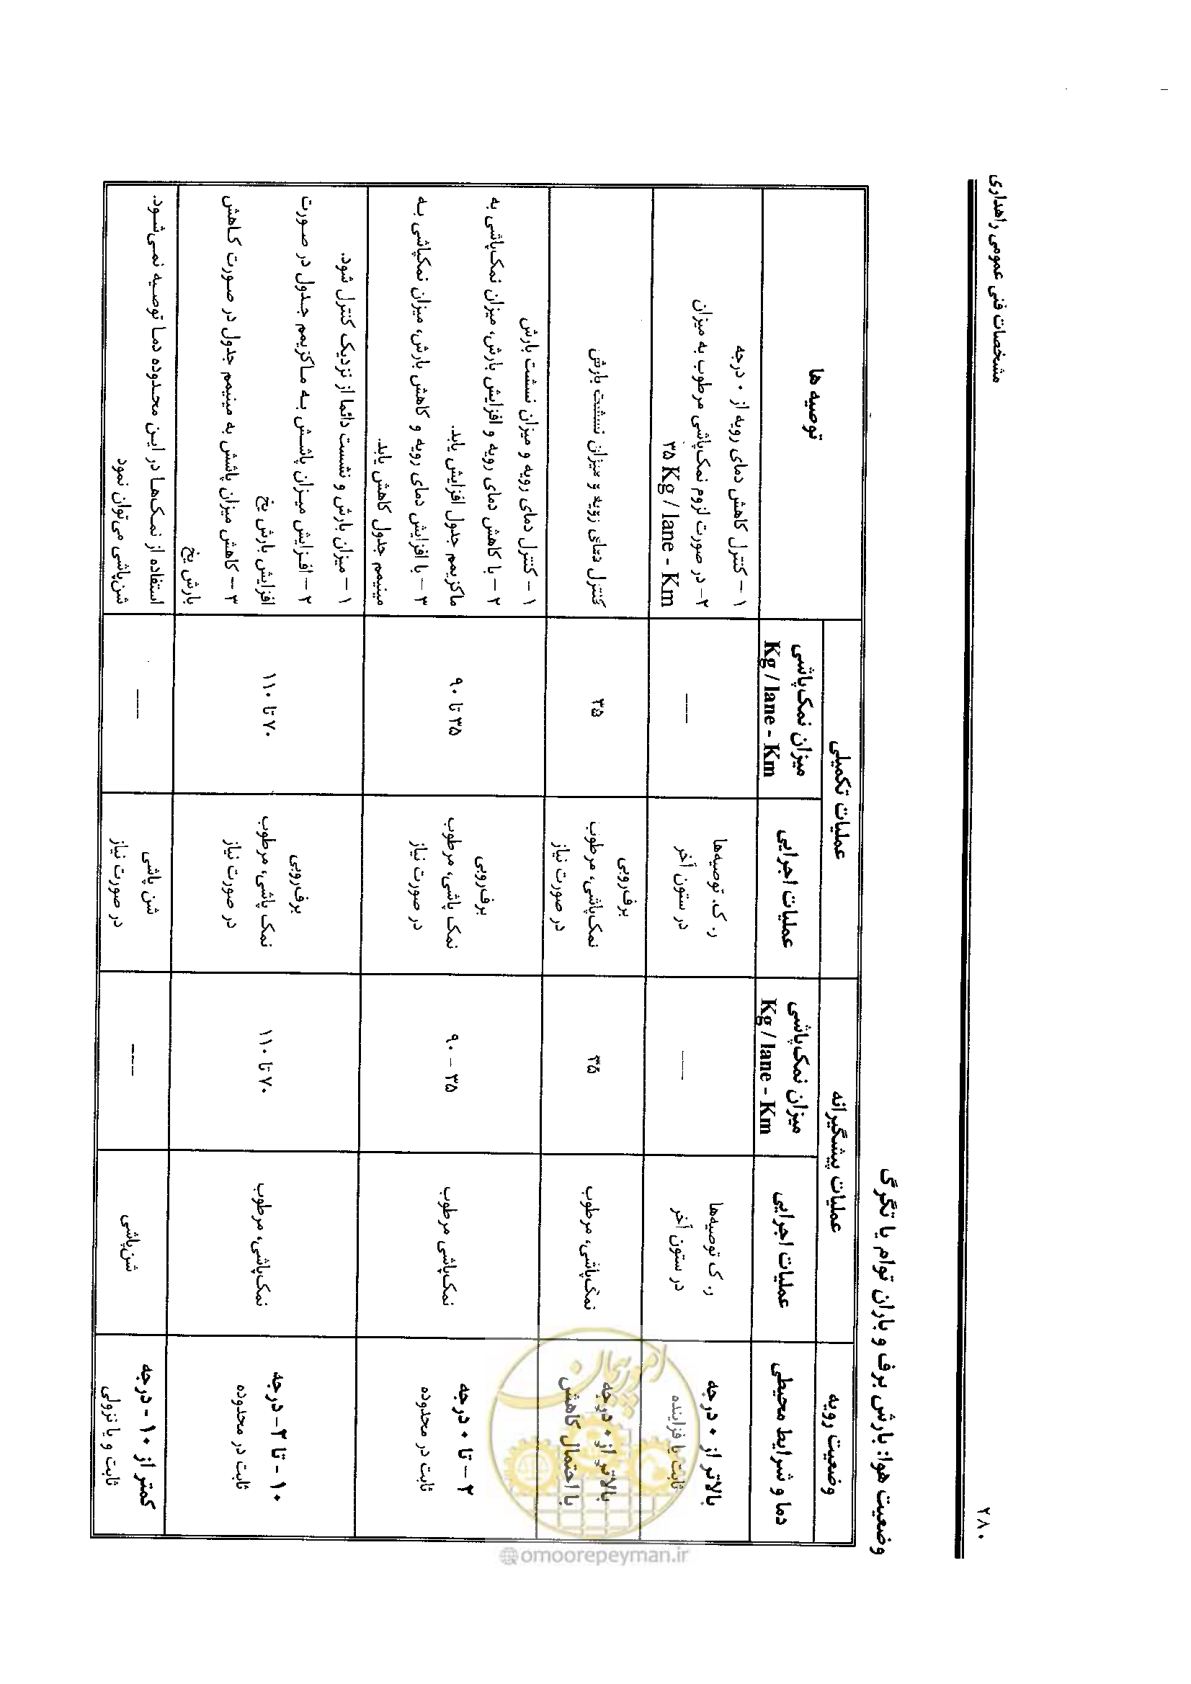 مشخصات فنی عمومی راهداری
۲۸۰
وضعیت هوا: بارش برف و باران توام یا تگرگ
وضعیت رویه
دما و شرایط محیطی
عملیات پیشگیرانه
عملیات اجرایی
میزان نمک‌پاشی
Kg / lane - Km
عملیات تکمیلی
عملیات اجرایی
میزان نمک‌پاشی
Kg / lane - Km
توصیه ها
بالاتر از ۰ درجه
ثابت یا فزاینده
ر. ک توصیه‌ها
در ستون آخر
—
ر. ک. توصیه‌ها
در ستون آخر
—
۱ – کنترل کاهش دمای رویه از ۰ درجه
۲– در صورت لزوم نمک‌پاشی مرطوب به میزان
۳۵ Kg / lane - Km
بالاتر از ۰ درجه
با احتمال کاهش
نمک‌پاشی، مرطوب
۳۵
برف‌روبی
نمک‌پاشی، مرطوب
در صورت نیاز
۳۵
کنترل دمای رویه و میزان نشست بارش
۲ – تا ۰ درجه
ثابت در محدوده
نمک‌پاشی مرطوب
۳۵ – ۹۰
برف‌روبی
نمک پاشی، مرطوب
در صورت نیاز
۳۵ تا ۹۰
۱ – کنترل دمای رویه و میزان نشست بارش
۲ – با کاهش دمای رویه و افزایش بارش، میزان نمک‌پاشی به
ماکزیمم جدول افزایش یابد.
۳ – با افزایش دمای رویه و کاهش بارش، میزان نمکپاشی به
مینیمم جدول کاهش یابد.
۱۰ - تا ۲– درجه
ثابت در محدوده
نمک‌پاشی، مرطوب
۷۰ تا ۱۱۰
برف‌روبی
نمک پاشی، مرطوب
در صورت نیاز
۷۰ تا ۱۱۰
۱ – میزان بارش و نشست دائما از نزدیک کنترل شود.
۲ – افزایش میزان پاشش به ماکزیمم جدول در صورت
افزایش بارش یخ
۳ – کاهش میزان پاشش به مینیمم جدول در صورت کاهش
بارش یخ
کمتر از ۱۰ - درجه
ثابت و یا نزولی
شن‌پاشی
---
شن پاشی
در صورت نیاز
—
استفاده از نمک‌ها در این محدوده دما توصیه نمی‌شود.
شن‌پاشی می‌توان نمود
امور پیمان
@omoorepeyman.ir